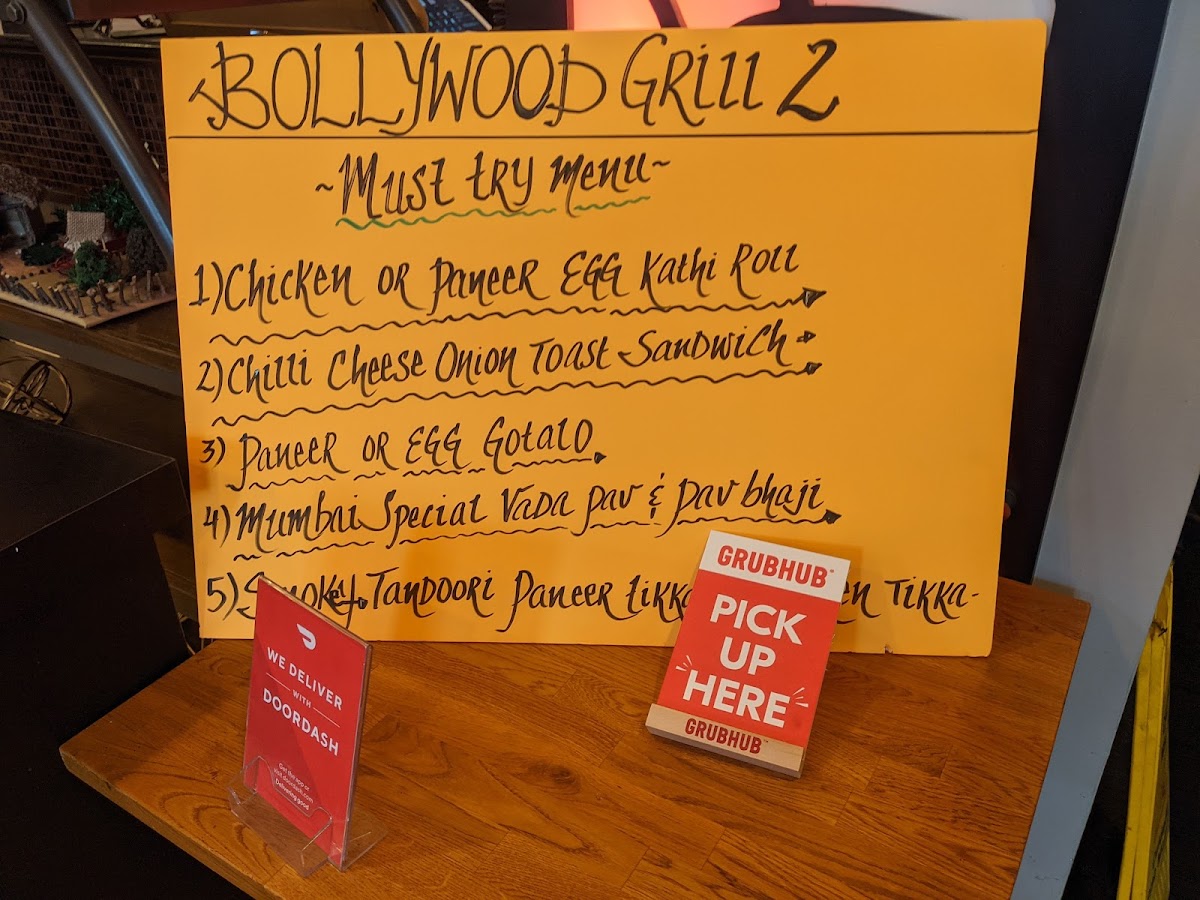 BOLLYWOOD GRILL 2
~Must try menu~
1) Chicken or Paneer Egg Kathi Roll
2) Chilli Cheese Onion Toast Sandwich
3) Paneer or Egg Gotalo
4) Mumbai Special Vada pav & pav bhaji
5) Tandoori Paneer Tikka-
GRUBHUB
PICK
UP
HERE
GRUBHUB
WE DELIVER
WITH
DOORDASH
Get the app or
visit doordash.com
Delivering good